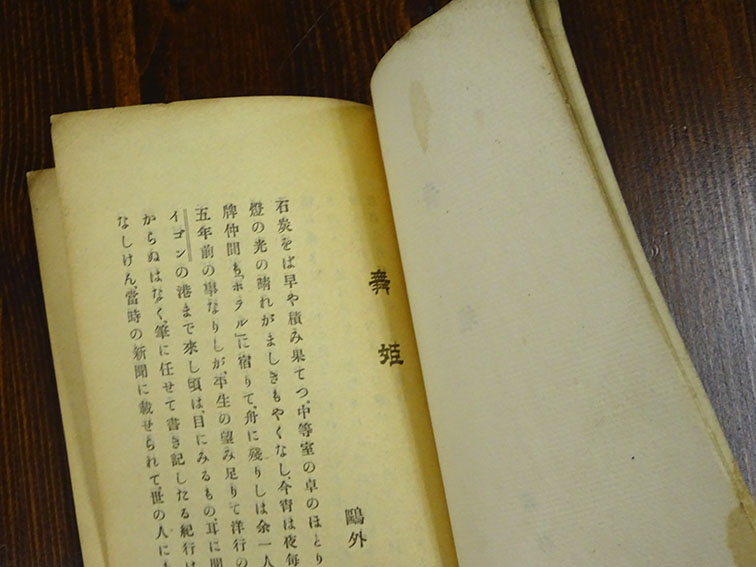 舞姫
鷗外
石炭をば早や積み果てつ、中等室の卓のほとり
燈の光の晴れがましきもやくなし、今宵は夜每
牌仲間も「ホテル」に宿りて、舟に殘りしは余一人
五年前の事なりしが、平生の望み足りて洋行の
イゴンの港まで來し頃は、目にみるもの、耳に聞
からぬはなく、筆に任せて書き記したる紀行は
なしけん、當時の新聞に載せられて、世の人に